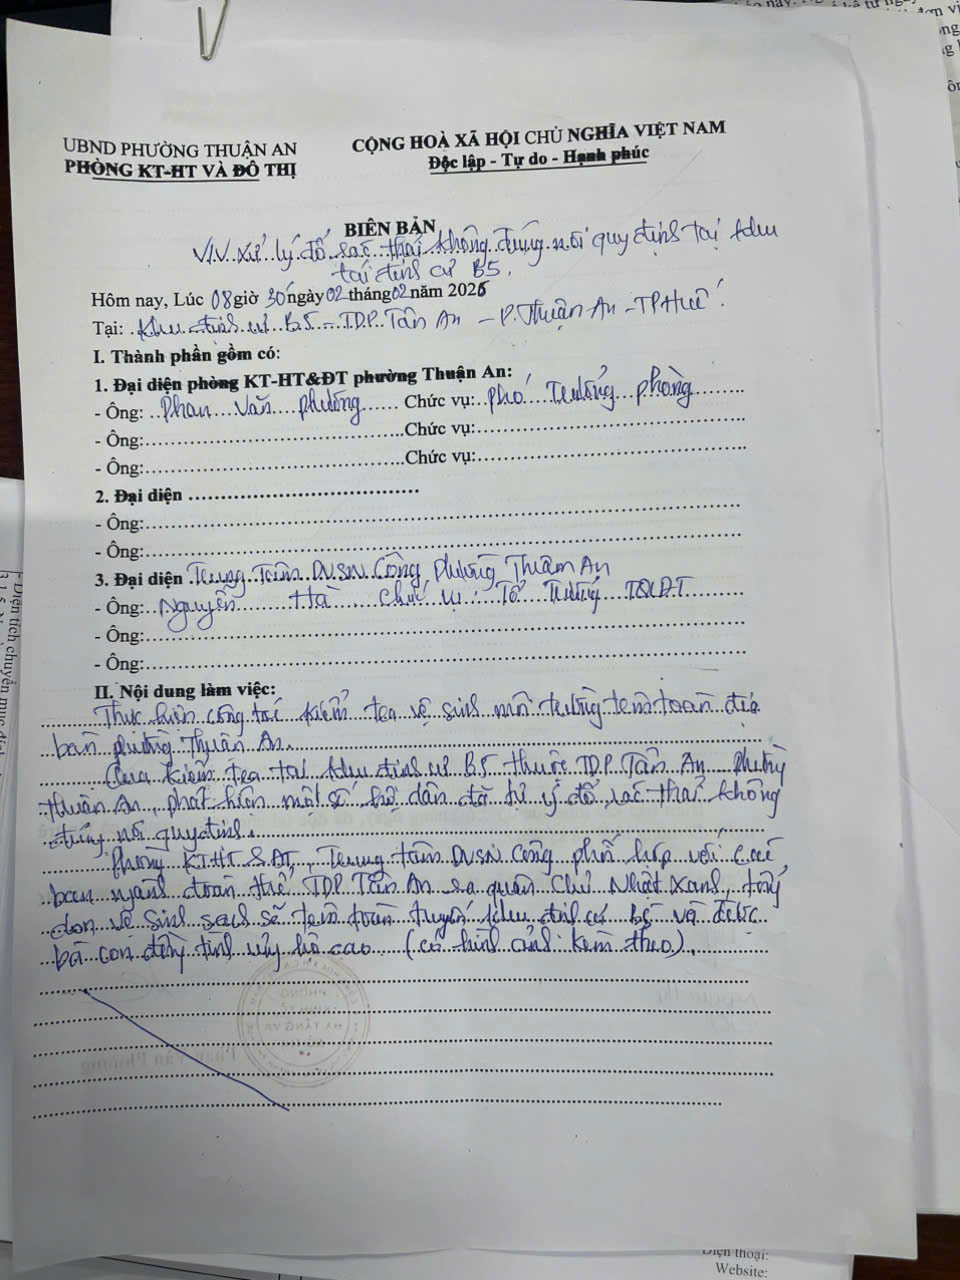 UBND PHƯỜNG THUẬN AN
PHÒNG KT-HT VÀ ĐÔ THỊ
CỘNG HOÀ XÃ HỘI CHỦ NGHĨA VIỆT NAM
Độc lập - Tự do - Hạnh phúc
BIÊN BẢN
V/v xử lý đổ rác thải không đúng nơi quy định tại khu
tái định cư B5.
Hôm nay, Lúc 08 giờ 30 ngày 02 tháng 02 năm 2026
Tại: Khu định cư B5 - TDP Tân An - P. Thuận An - TP Huế.
I. Thành phần gồm có:
1. Đại diện phòng KT-HT&ĐT phường Thuận An:
- Ông: Phan Văn Phường Chức vụ: Phó Trưởng phòng
- Ông: Chức vụ:
- Ông: Chức vụ:
2. Đại diện
- Ông:
- Ông:
3. Đại diện Trung Tâm DVSN Công Phường Thuận An
- Ông: Nguyễn Hà Chức vụ: Tổ Trưởng TQLĐT
- Ông:
- Ông:
II. Nội dung làm việc:
Thực hiện công tác kiểm tra vệ sinh môi trường trên toàn địa
bàn phường Thuận An.
Qua kiểm tra tại khu định cư B5 thuộc TDP Tân An phường
Thuận An, phát hiện một số hộ dân đã tự ý đổ rác thải không
đúng nơi quy định.
Phòng KTHT&ĐT, Trung tâm DVSN Công phối hợp với các
ban ngành đoàn thể TDP Tân An ra quân Chủ Nhật Xanh, tổng
dọn vệ sinh sạch sẽ trên toàn tuyến khu định cư B5 và được
bà con đồng tình ủng hộ cao (có hình ảnh kèm theo).
Điện thoại:
Website: